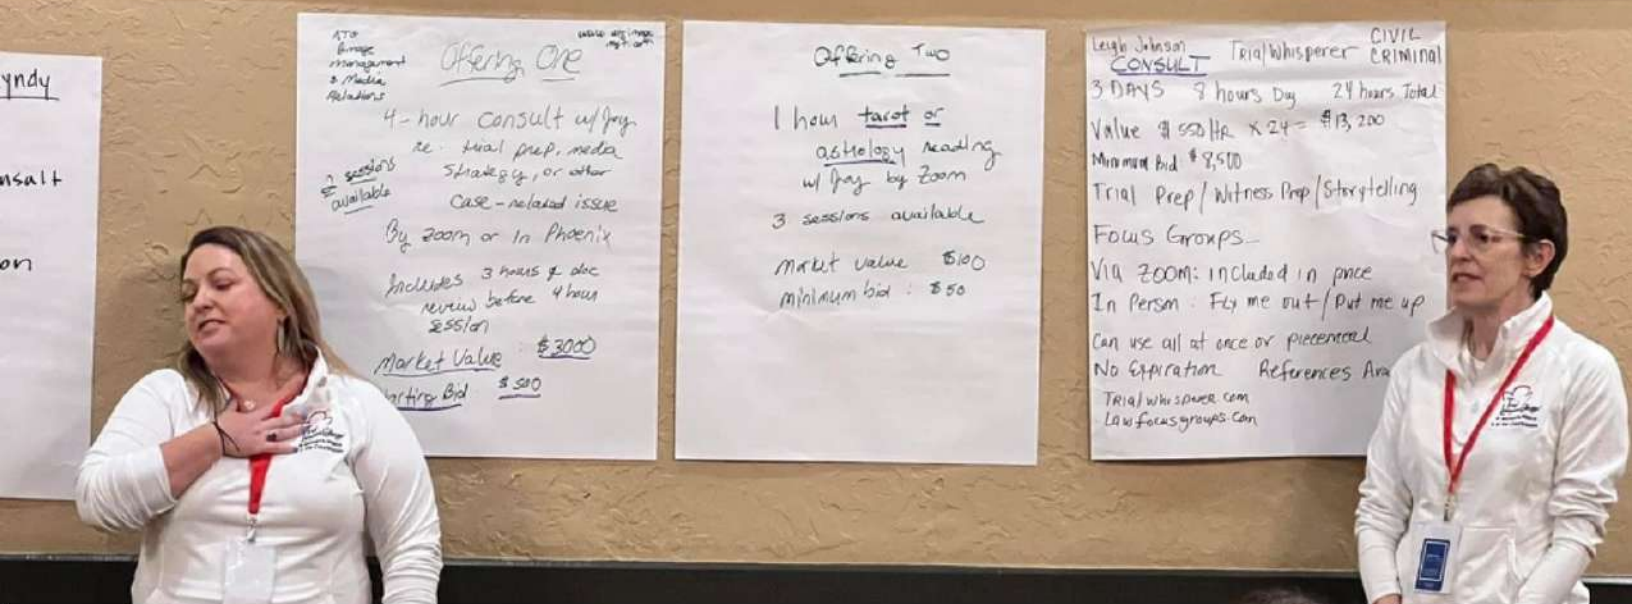 yndy
nsalt
on
ATO
Image
Management
& Media
Relations
Offering One
4-hour consult w/ Joy
re. trial prep, media
strategy, or other
case-related issue
2 sessions
available
By zoom or In Phoenix
Includes 3 hours of doc
review before 4 hour
session
Market Value : $3000
arting Bid $500
Offering Two
1 hour tarot or
astrology reading
w/ Joy by Zoom
3 sessions available
market value $100
minimum bid : $50
Leigh Johnson TrialWhisperer CIVIL
CONSULT CRIMINAL
3 DAYS 8 hours Day 24 hours Total
Value $550/HR X 24 = $13,200
Minimum Bid $8,500
Trial Prep/Witness Prep/Storytelling
Focus Groups
Via ZOOM: included in price
In Person: Fly me out/Put me up
Can use all at once or piecemeal
No Expiration References Ava
Trialwhisperer.com
Lawfocusgroups.com